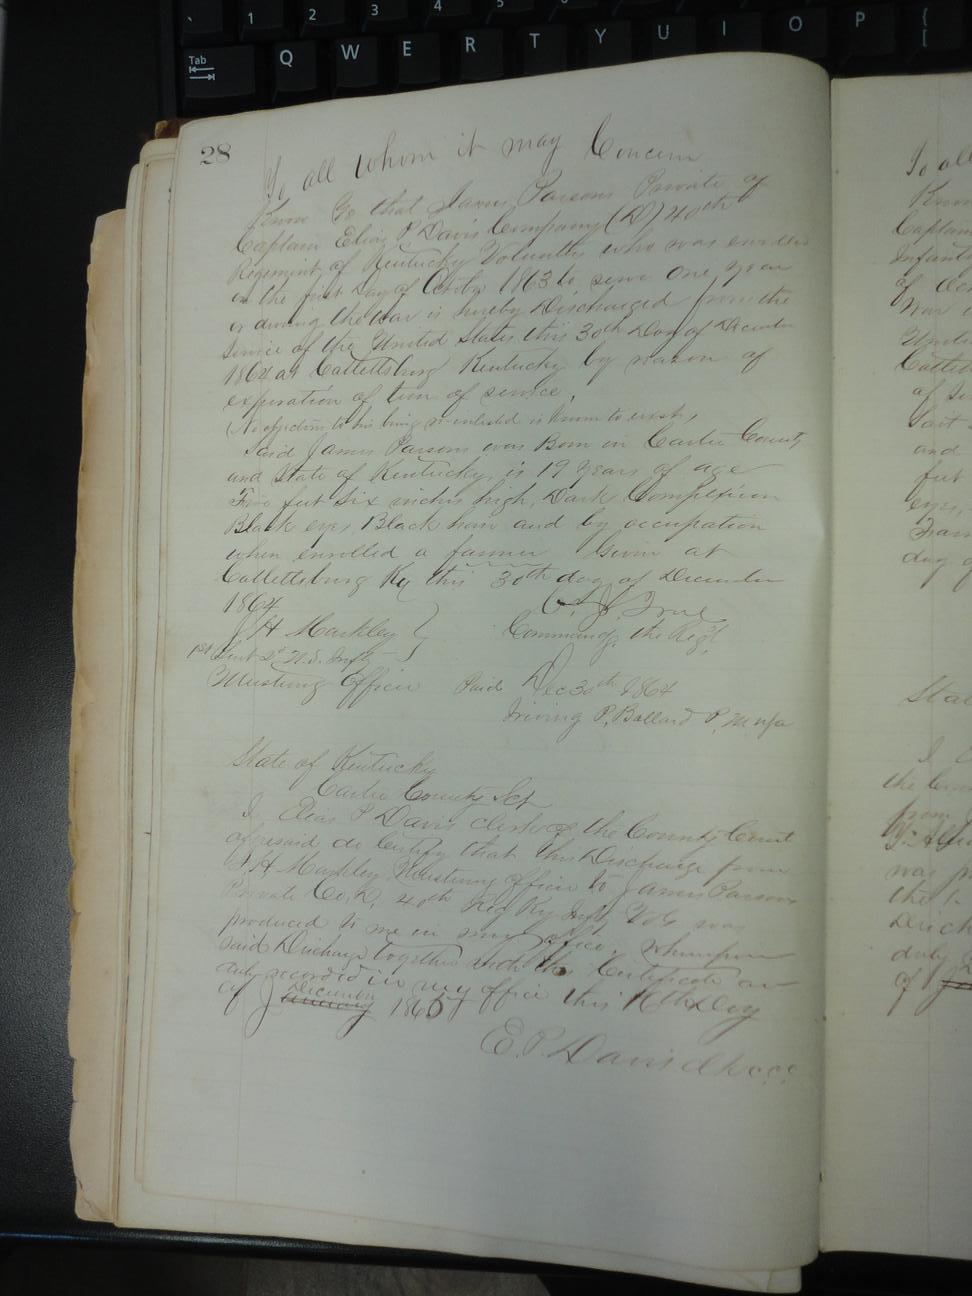 ` 1 2 3 4 5
Tab Q W E R T Y U I O P { [
28
To all whom it may Concern
Know Ye that James Parsons Private of
Captain Elias P Davis Company (D) 40th
Regiment of Kentucky Volunteers who was enrolled
on the first day of 1863 to serve One year
or during the war is hereby Discharged from the
Service of the United States this 30th Day of December
1864 at Catlettsburg Kentucky by reason of
expiration of time of service,
(No objection to his being re-enlisted is known to exist,
Said James Parsons was Born in Carter County
and State of Kentucky, is 19 years of age
Five feet Six inches high, Dark Complexion
Black eyes, Black hair and by occupation
when enrolled a farmer Given at
Catlettsburg Ky this 30th day of December
1864
True
J H Markley } Commandg the Regt.
1st Lieut 2d U.S. Infty
Mustering Officer Paid Dec 30th 1864
Irving P. Ballard P.
State of Kentucky
Carter County Sct
I, Elias P Davis clerk of the County Court
aforesaid do Certify that this Discharge from
J H Markley Mustering Officer to James Parsons
Private Co. D, 40th Reg Ky Infty was
produced to me in my office. Whereupon
said Discharge together with this Certificate are
duly recorded in my office this Day
of December January 1865
E. P. Davis
To all
Know
Captain
Infant
of
War
Unite
Catlett
of
Said
and
feet
eyes,
day of
Stat
I
the
from
was
the
Disch
duly
of